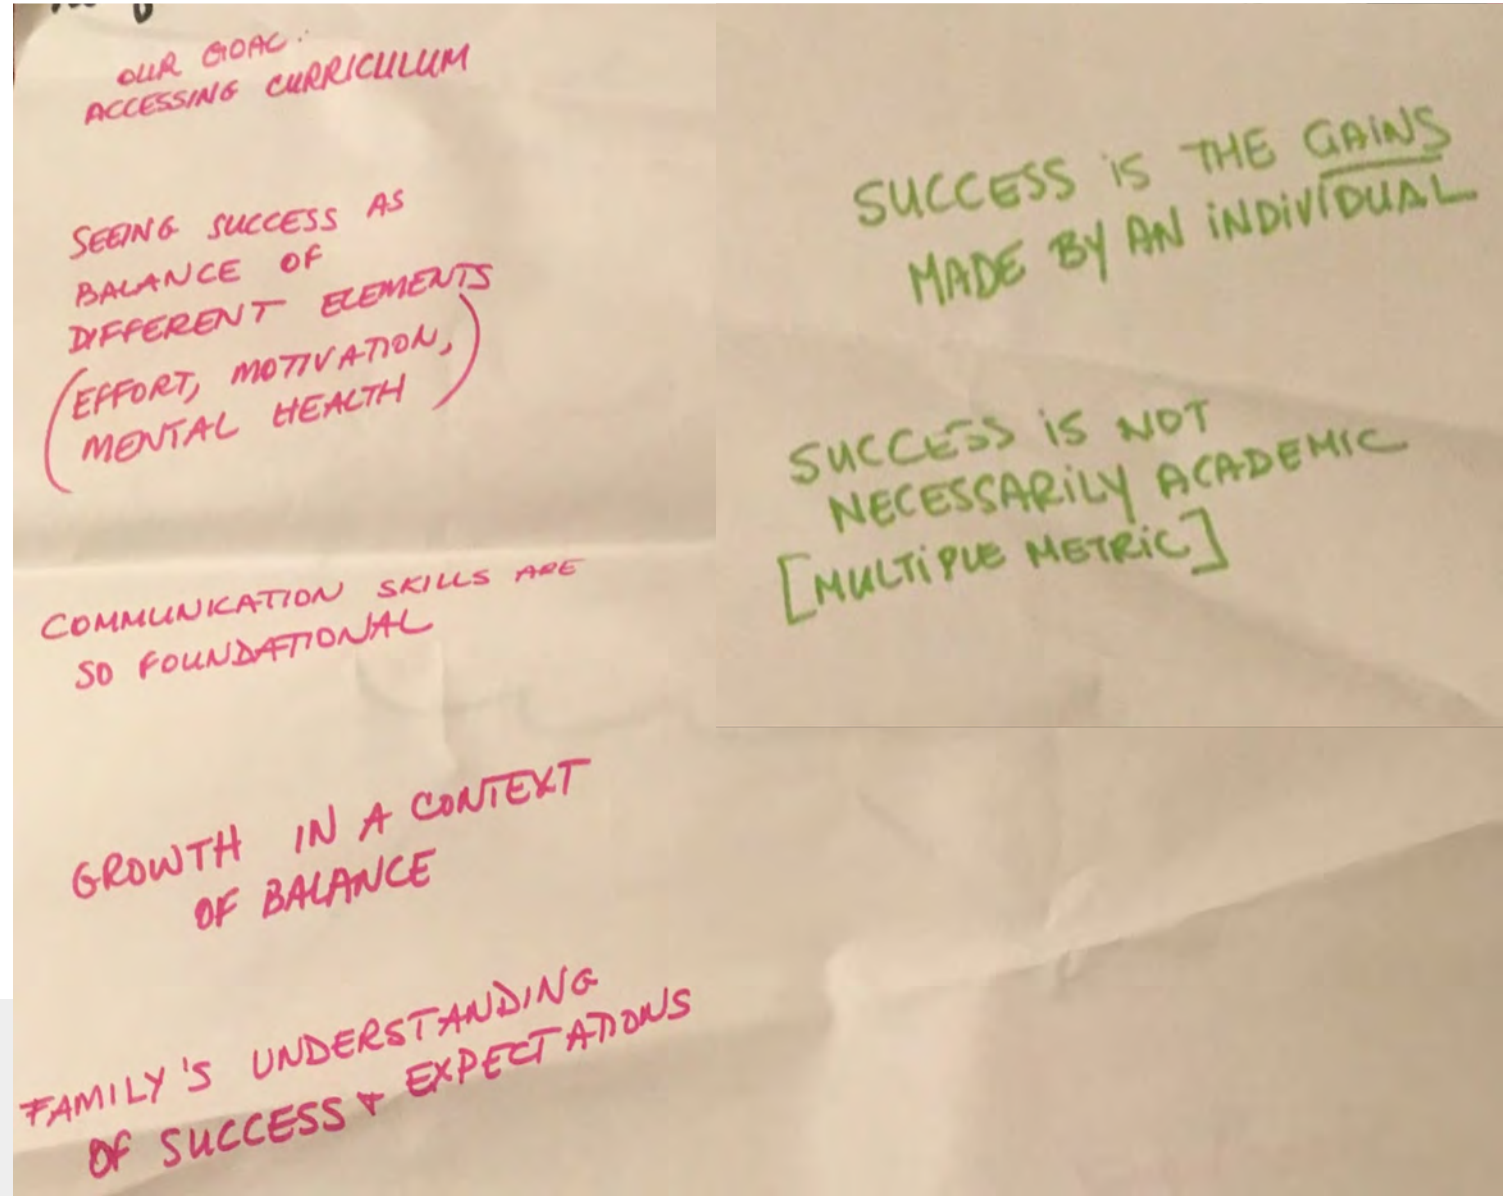 OUR GOAL:
ACCESSING CURRICULUM
SEEING SUCCESS AS
BALANCE OF
DIFFERENT ELEMENTS
(EFFORT, MOTIVATION,
MENTAL HEALTH)
COMMUNICATION SKILLS ARE
SO FOUNDATIONAL
GROWTH IN A CONTEXT
OF BALANCE
FAMILY'S UNDERSTANDING
OF SUCCESS + EXPECTATIONS
SUCCESS IS THE GAINS
MADE BY AN INDIVIDUAL
SUCCESS IS NOT
NECESSARILY ACADEMIC
[MULTIPLE METRIC]